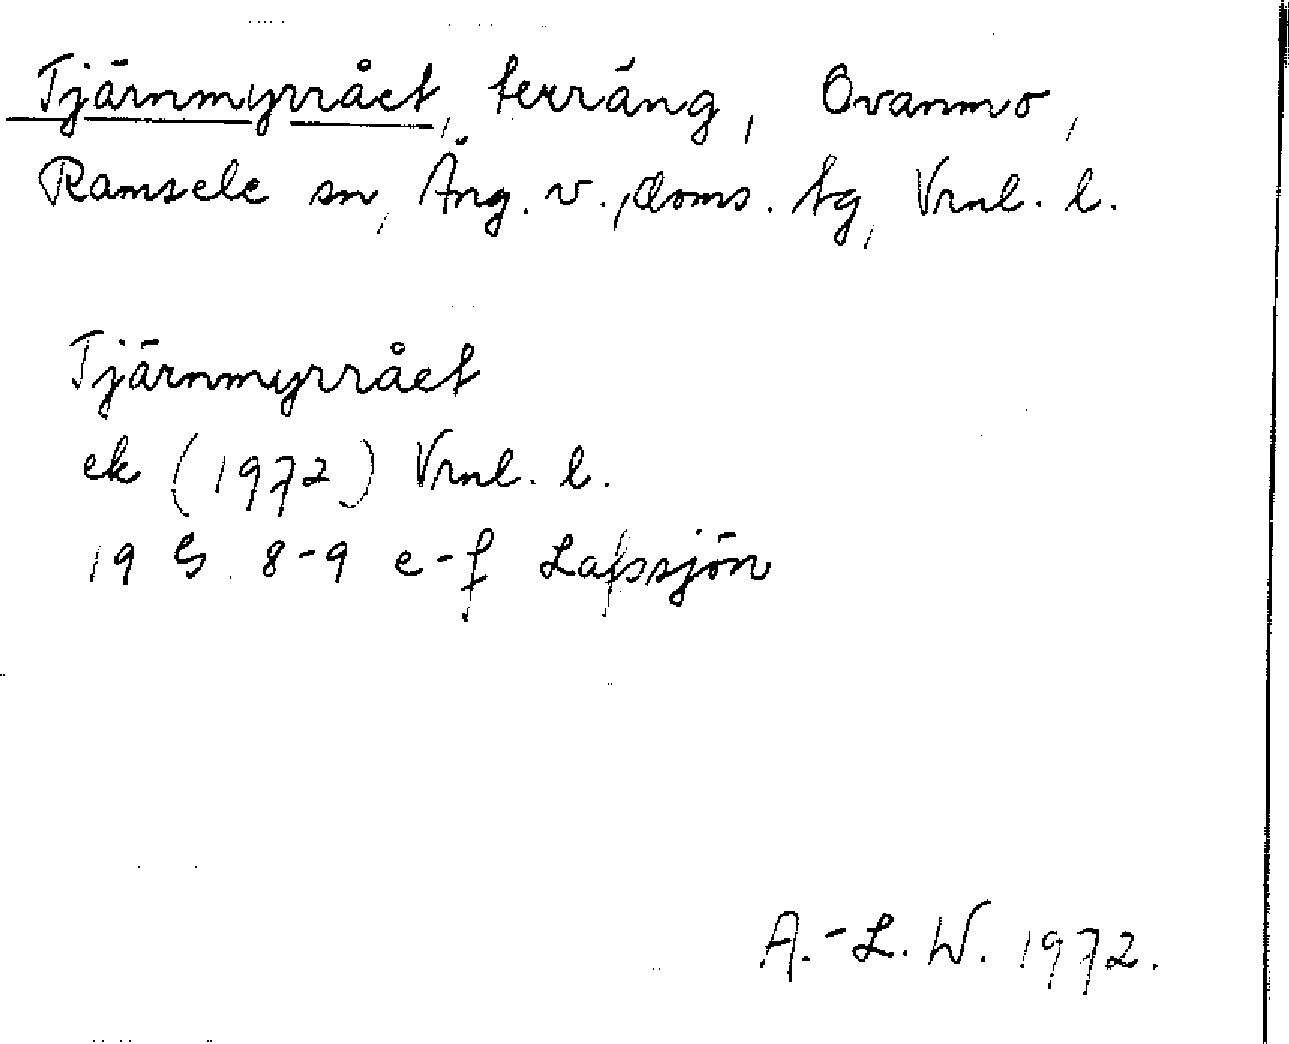 Tjärnmyrrået, terräng, Ovanmo,
Ramsele sn, Äng. v., doms. tg, Vrnl. l.
Tjärnmyrrået
ek (1972) Vrnl. l.
19 G 8-9 e-f Lafssjön
A.-L. W. 1972.